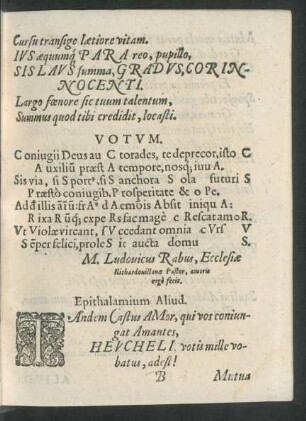 Cursu transige lætiore vitam.
IVS æquumq́ PARA reo, pupillo,
SIS LAVS summa, GRADVS, COR IN-
NOCENTI.
Largo fœnore sic tuum talentum,
Summus quod tibi credidit, locasti.
VOTVM.
Coniugii Deus au C torades, te deprecor, isto C
A uxiliũ præst A tempore, nosq́; iuu A.
Sis via, si S port, si S anchora S ola futuri S
P ræstò coniugib. P rosperitate & o Pe.
R ixa R
Vt Violæ vireant, sV ccedant omnia cVrs V
S ẽper felici, prole S ic aucta domu S.
M. Ludovicus Rabus, Ecclesiæ
Pastor, amoris
ergò fecit.
Epithalamium Aliud.
TAndem Castus AMor, qui vos coniun-
gat Amantes,
HEVCHELI. votis mille vo-
batus, adest!
B Mutua